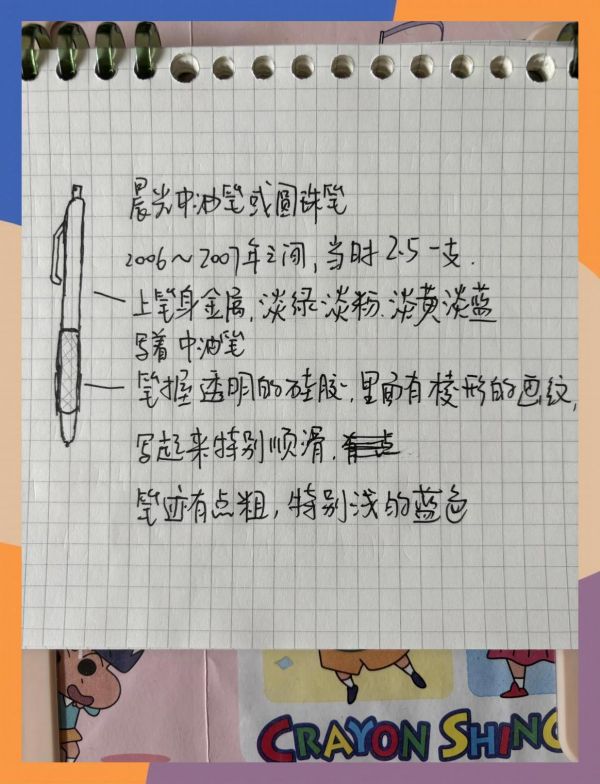 晨光中油笔或圆珠笔
2006～2007年之间,当时2.5一支.
上笔身金属,淡绿淡粉、淡黄淡蓝
写着中油笔
笔握透明的硅胶,里面有棱形的画纹,
写起来特别顺滑,有点
笔迹有点粗,特别浅的蓝色
CRAYON SHINC